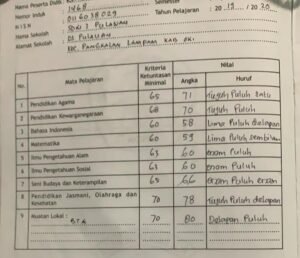 Nama Peserta Didik
Nomor Induk : 1468
N I S N : 0116038029
Nama Sekolah : SDN 1 PULAUAN
Alamat Sekolah : DS PULAUAN
KEC. PANGKALAN LAMPAM KAB OKI
Semester
Tahun Pelajaran : 20 19 / 20 20
No. Mata Pelajaran Kriteria Ketuntasan Minimal Nilai
Angka Huruf
1. Pendidikan Agama 65 71 Tujuh Puluh satu
2. Pendidikan Kewarganegaraan 68 70 Tujuh Puluh
3. Bahasa Indonesia 60 58 Lima Puluh delapan
4. Matematika 60 59 Lima Puluh sembilan
5. Ilmu Pengetahuan Alam 63 60 enam Puluh
6. Ilmu Pengetahuan Sosial 63 60 enam Puluh
7. Seni Budaya dan Keterampilan 65 66 enam Puluh enam
8 Pendidikan Jasmani, Olahraga dan Kesehatan 70 78 Tujuh Puluh delapan
9 Muatan Lokal : BTA 70 80 Delapan Puluh